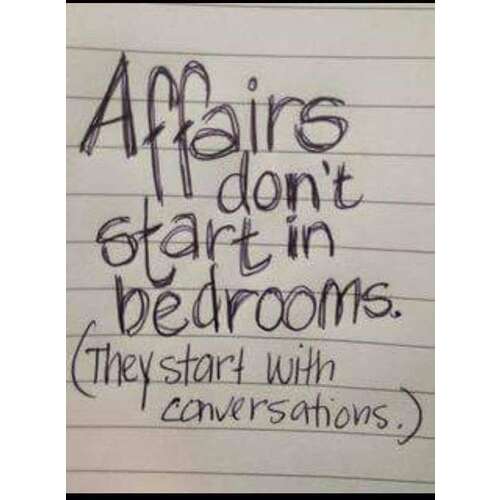 Affairs
don't
start in
bedrooms.
(They start with
conversations.)